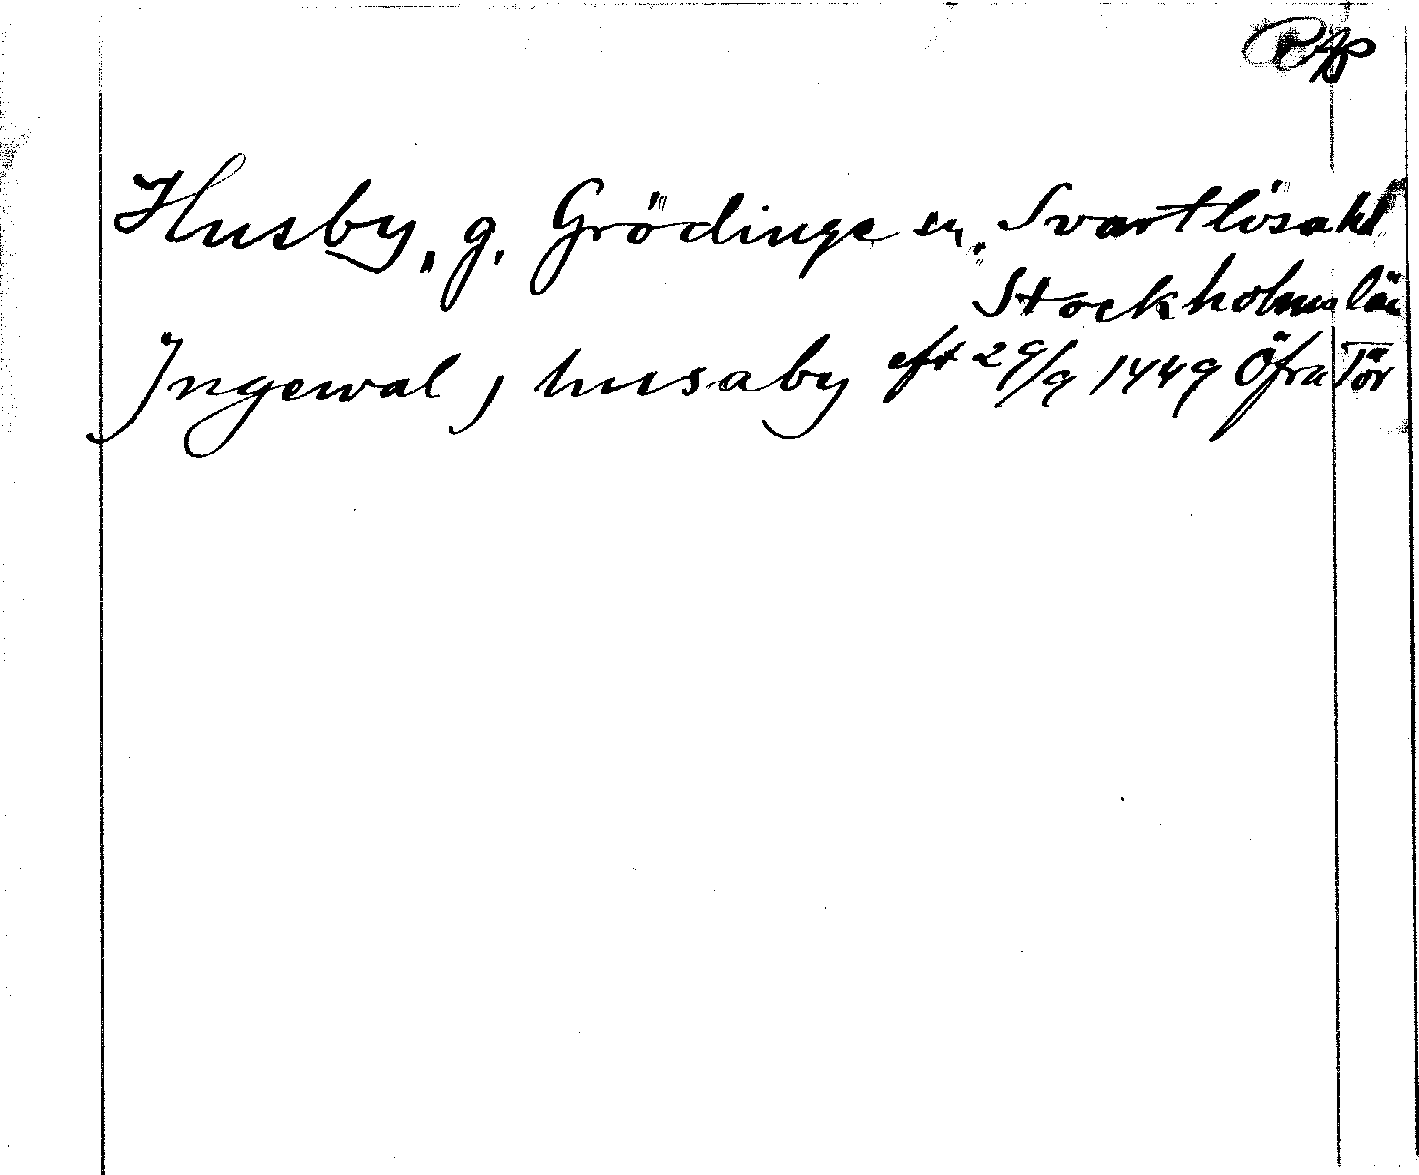 RAp
Husby, g. Grödinge sn. Svartlösa hd
Stockholms län
Ingewal j husaby eft 29/9 1449 Öfra Tör